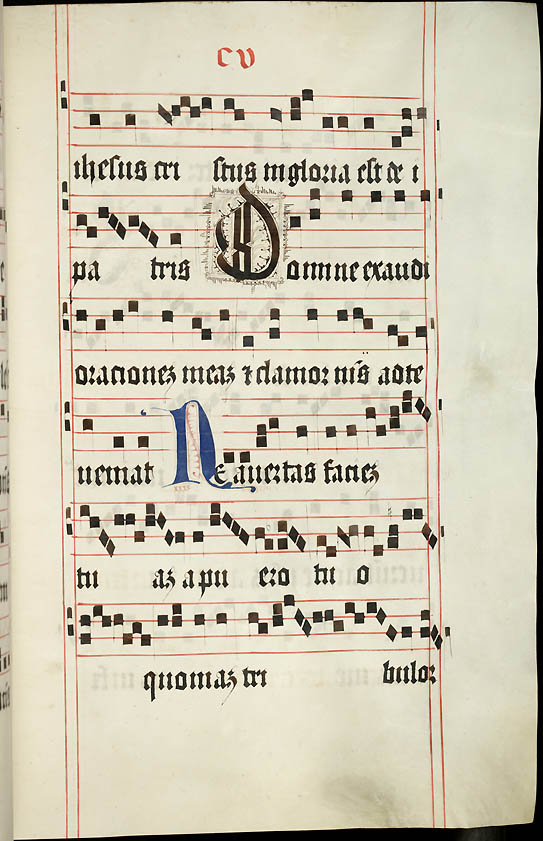 cv
ihesus cri stus in gloria est de i
pa tris Domine exaudi
oracionez meaz & clamor ms̄ ad te
ueniat Ne auertas faciez
tu az a pu ero tu o
quoniaz tri bulor